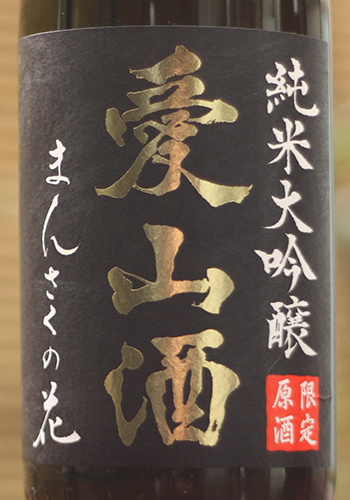 純米大吟醸
限定
原酒
愛山酒
まんさくの花